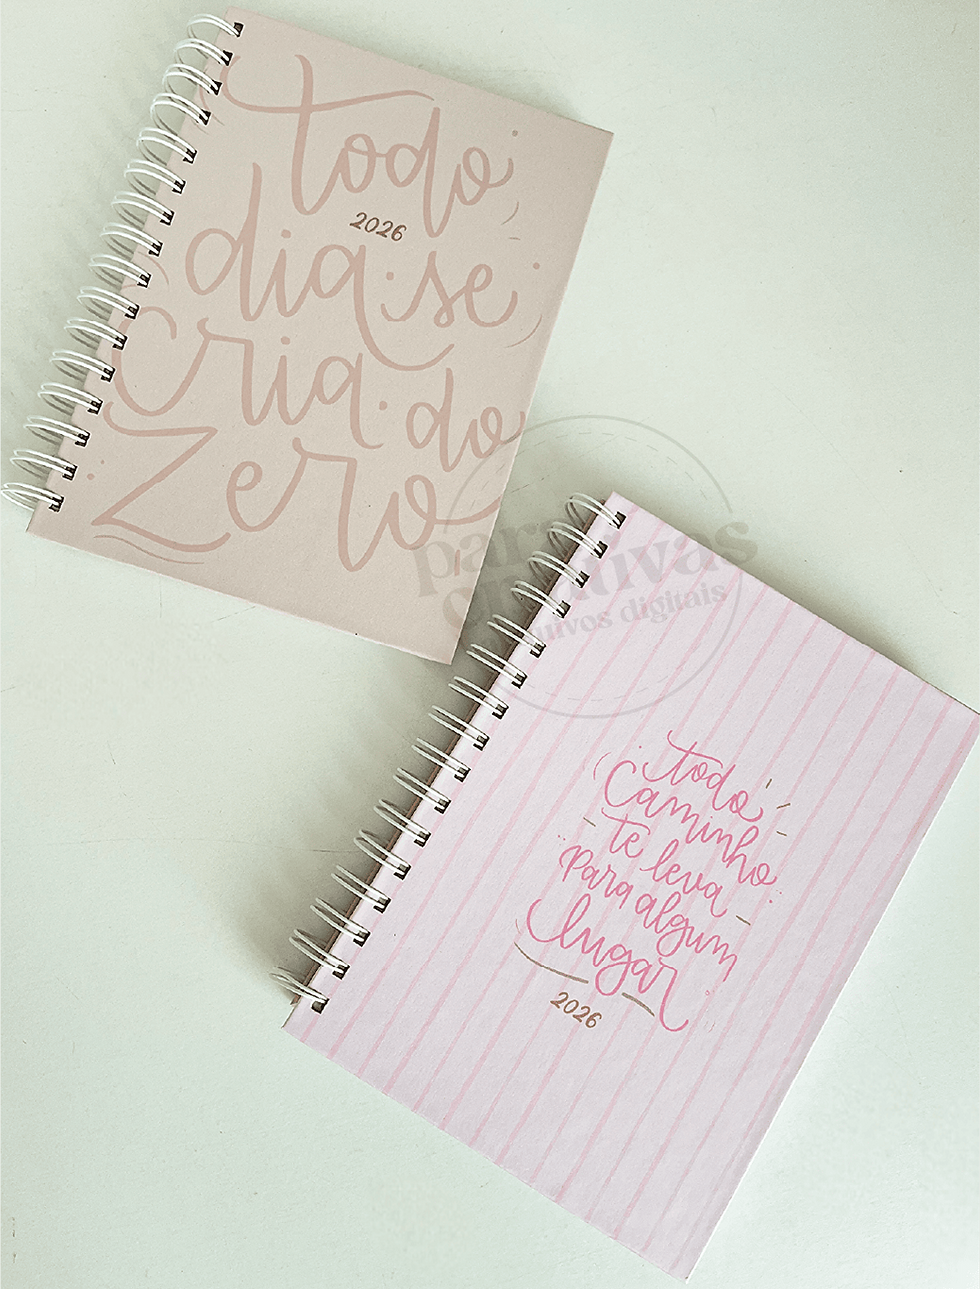 todo
2026
dia·se
Cria·do
Zero
para
criativas
arquivos digitais
todo
Caminho
te leva
para algum
lugar
2026